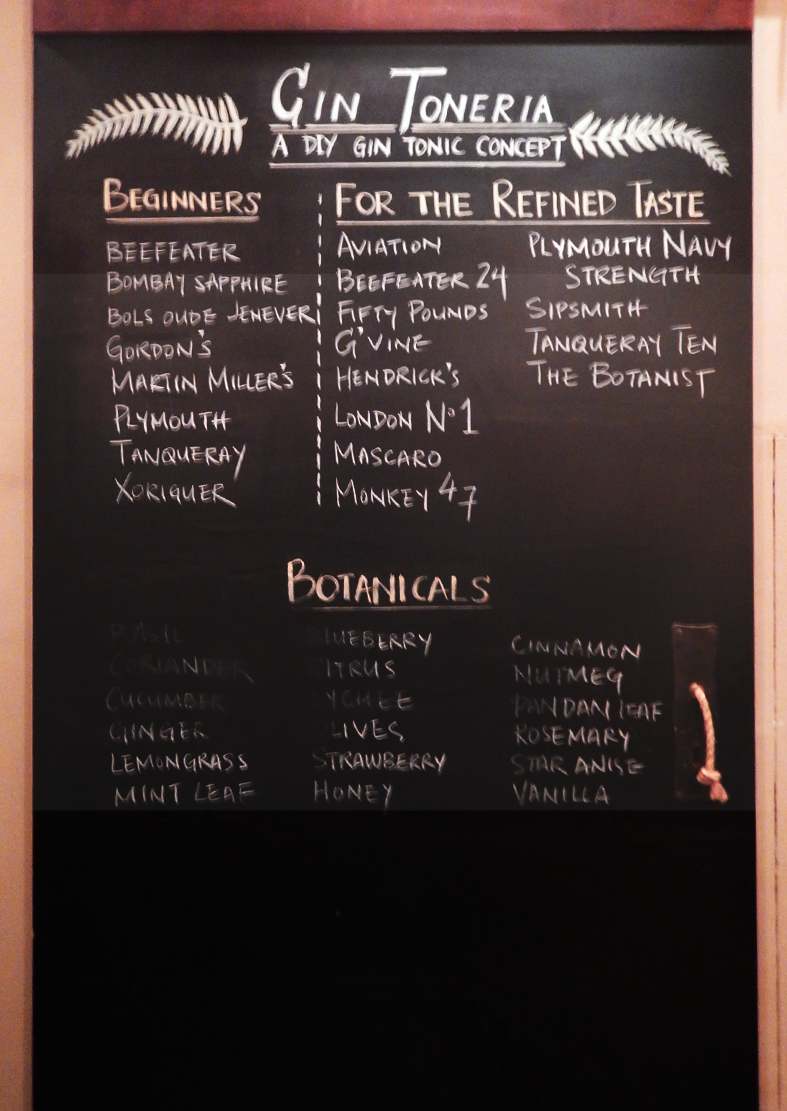 GIN TONERIA
A DIY GIN TONIC CONCEPT
BEGINNERS
BEEFEATER
BOMBAY SAPPHIRE
BOLS OUDE JENEVER
GORDON'S
MARTIN MILLER'S
PLYMOUTH
TANQUERAY
XORIGUER
FOR THE REFINED TASTE
AVIATION
BEEFEATER 24
FIFTY POUNDS
G'VINE
HENDRICK'S
LONDON Nº1
MASCARO
MONKEY 47
PLYMOUTH NAVY
STRENGTH
SIPSMITH
TANQUERAY TEN
THE BOTANIST
BOTANICALS
BASIL
CORIANDER
CUCUMBER
GINGER
LEMONGRASS
MINT LEAF
BLUEBERRY
CITRUS
LYCHEE
OLIVES
STRAWBERRY
HONEY
CINNAMON
NUTMEG
PANDAN LEAF
ROSEMARY
STAR ANISE
VANILLA